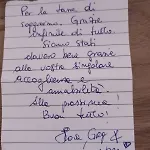 Per la tana di
Grazie
infinite di tutto.
Siamo stati
davvero bene grazie
alla vostra singolare
accoglienza e
amabilità
Alla prossima!
Buon tutto!